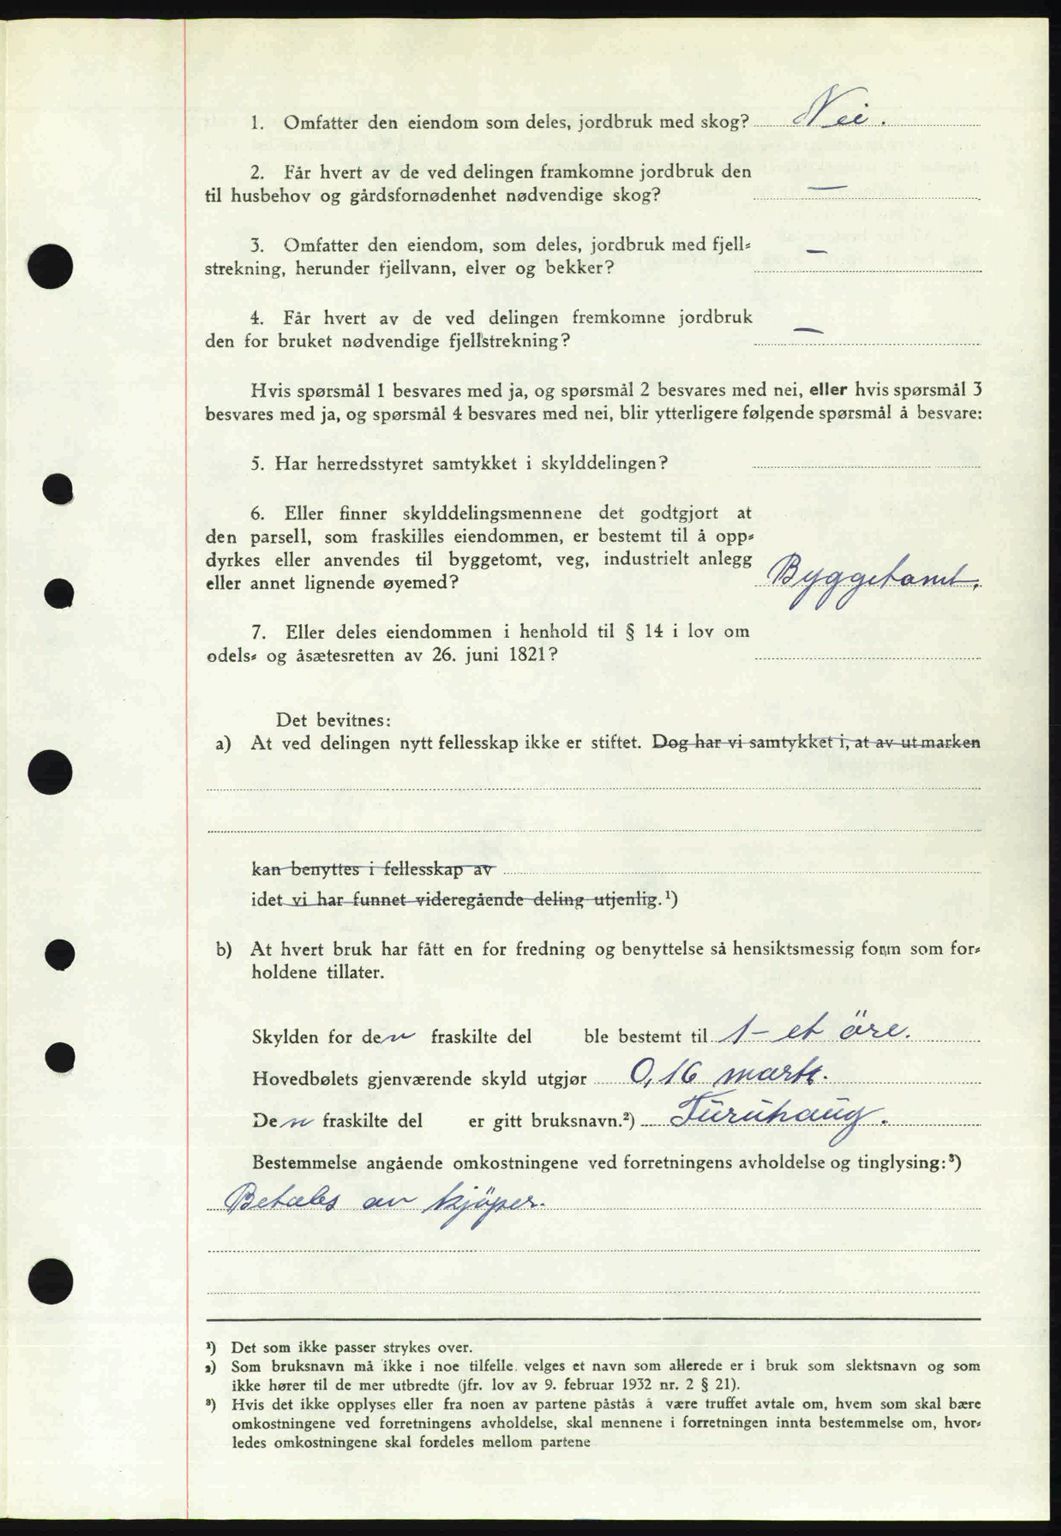 1. Omfatter den eiendom som deles, jordbruk med skog? Nei.
2. Får hvert av de ved delingen framkomne jordbruk den
til husbehov og gårdsfornødenhet nødvendige skog? —
3. Omfatter den eiendom, som deles, jordbruk med fjell-
strekning, herunder fjellvann, elver og bekker? —
4. Får hvert av de ved delingen fremkomne jordbruk
den for bruket nødvendige fjellstrekning? —
Hvis spørsmål 1 besvares med ja, og spørsmål 2 besvares med nei, eller hvis spørsmål 3
besvares med ja, og spørsmål 4 besvares med nei, blir ytterligere følgende spørsmål å besvare:
5. Har herredsstyret samtykket i skylddelingen?
6. Eller finner skylddelingsmennene det godtgjort at
den parsell, som fraskilles eiendommen, er bestemt til å opp-
dyrkes eller anvendes til byggetomt, veg, industrielt anlegg
eller annet lignende øyemed? Byggetomt.
7. Eller deles eiendommen i henhold til § 14 i lov om
odels- og åsætesretten av 26. juni 1821?
Det bevitnes:
a) At ved delingen nytt fellesskap ikke er stiftet. Dog har vi samtykket i, at av utmarken
kan benyttes i fellesskap av
idet vi har funnet videregående deling utjenlig.¹)
b) At hvert bruk har fått en for fredning og benyttelse så hensiktsmessig form som for-
holdene tillater.
Skylden for den fraskilte del ble bestemt til 1 – et öre.
Hovedbølets gjenværende skyld utgjør 0,16 mark.
Den fraskilte del er gitt bruksnavn.²) Furuhaug.
Bestemmelse angående omkostningene ved forretningens avholdelse og tinglysing:³)
Betales av kjöper.
¹) Det som ikke passer strykes over.
²) Som bruksnavn må ikke i noe tilfelle velges et navn som allerede er i bruk som slektsnavn og som
ikke hører til de mer utbredte (jfr. lov av 9. februar 1932 nr. 2 § 21).
³) Hvis det ikke opplyses eller fra noen av partene påstås å være truffet avtale om, hvem som skal bære
omkostningene ved forretningens avholdelse, skal mennene i forretningen innta bestemmelse om, hvor-
ledes omkostningene skal fordeles mellom partene